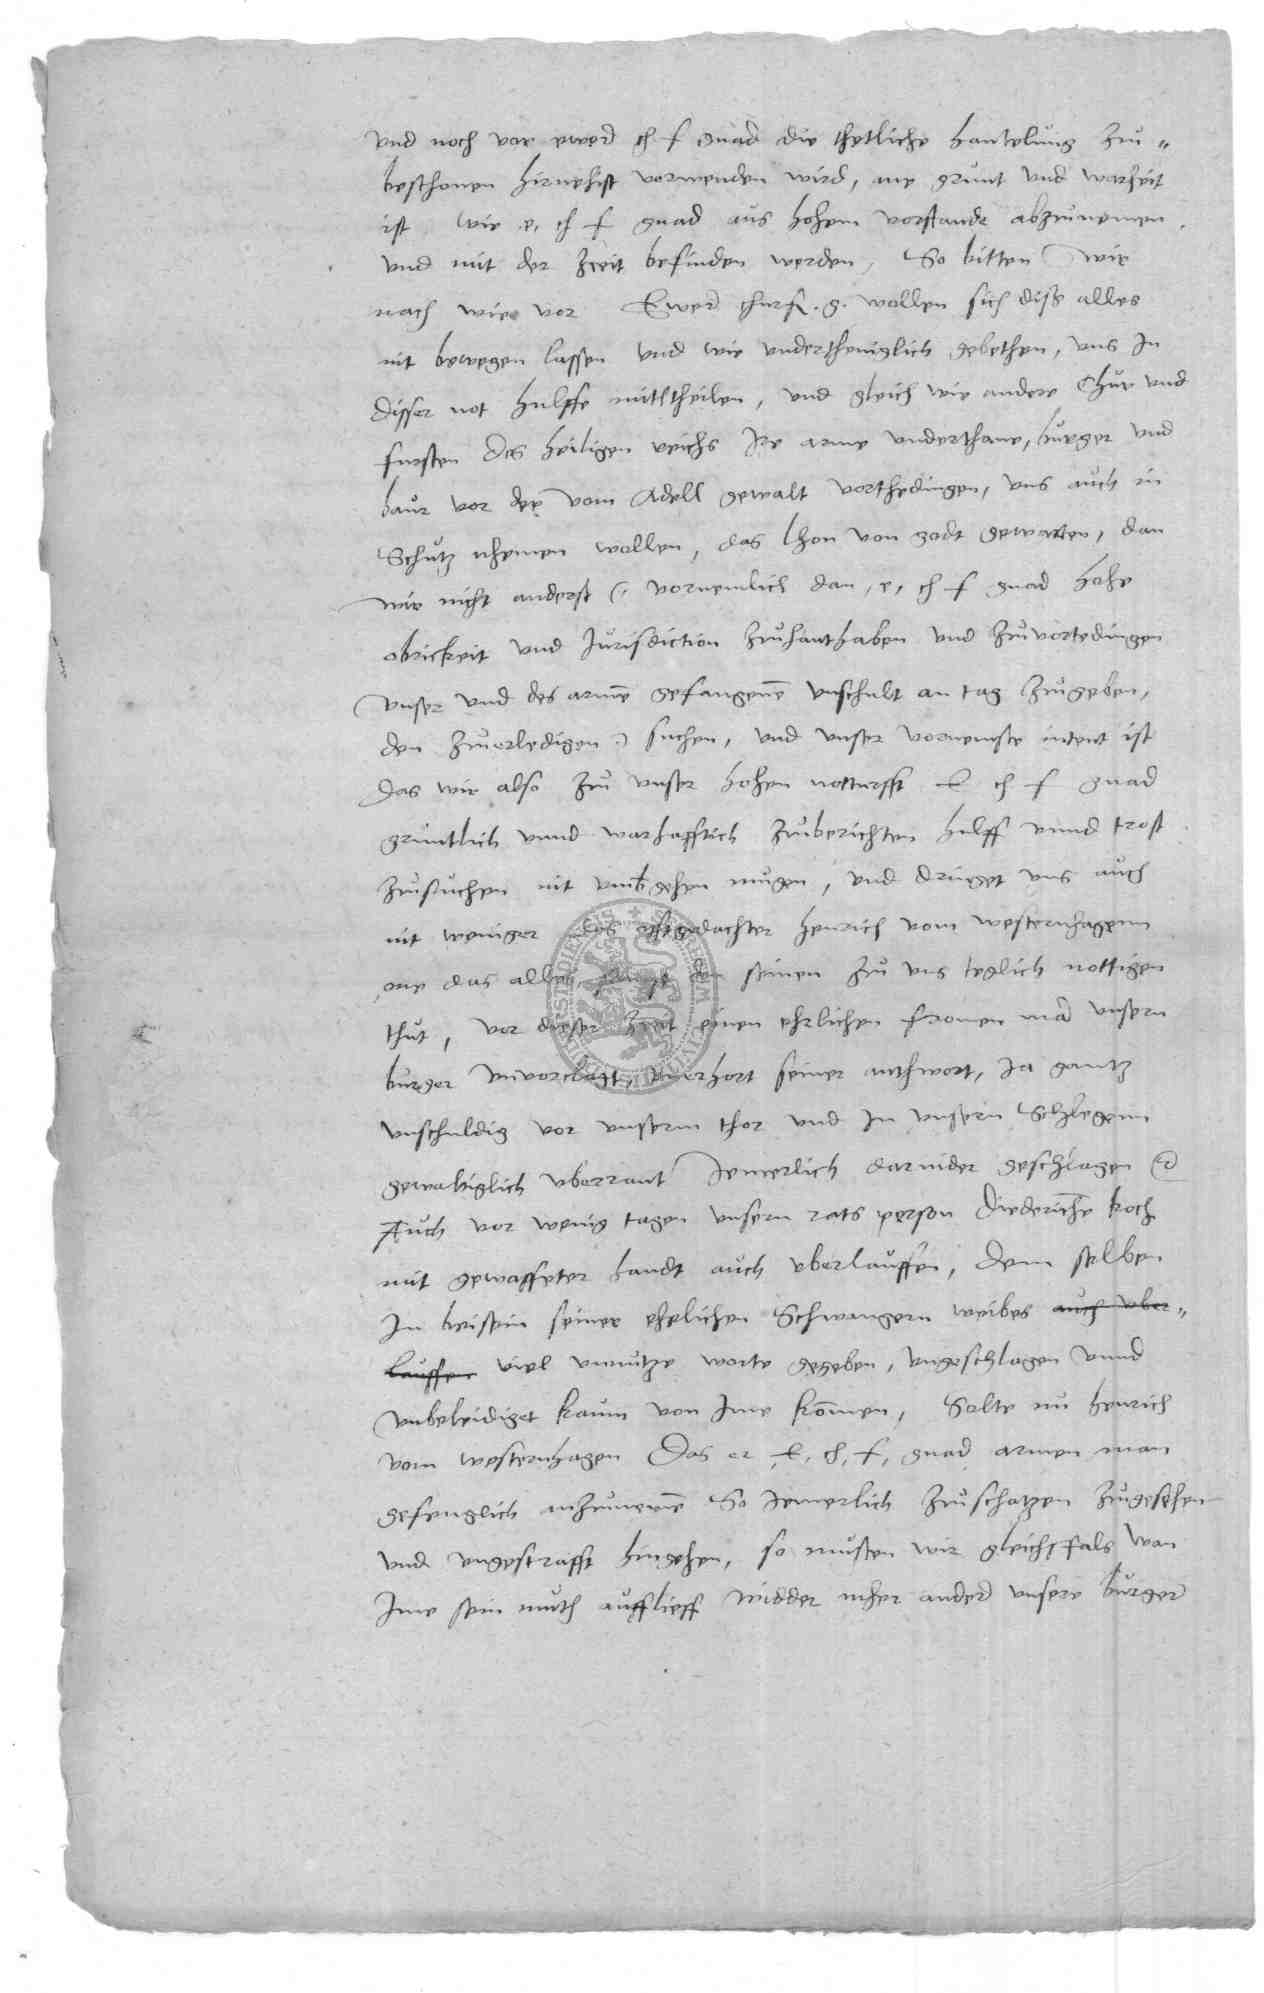 vnd noch vor ewer ch f gnad die thetliche hantelung zu=
beschonen hirnehist vorwenden wird, ane grunt vnd warheit
ist, wie e, ch f gnad aus hohem vorstande abzunemen
vnd mit der zeit befinden werden, So bitten wir
nach wie vor Ewer churf. g. wollen sich diss alles
nit bewegen lassen vnd wie vndertheniglich gebethen, vns In
disser not hulffe mittheilen, vnd gleich wie andere Chur vnd
fursten des heiligen reichs Ire arme vnderthane, burger vnd
baur vor der vom Adell gewalt vorthedingen, vns auch in
Schutz nhemen wollen, das lhon von godt gewarten, dan
wir nicht anderst (, vornemlich dan, e, ch f gnad hohe
obrickeit vnd Jurisdiction zuhanthaben vnd zuvortedingen
vnser vnd des arme gefangene vnschult an tag zugeben,
den zuerledigen) suchen, vnd vnser vornemste intent ist
das wir also zu vnser hohen notturfft E ch f gnad
gruntlich vnnd warhafftich zuberichten hulff vnnd trost
zusuchen nit vmbgehen mugen, vnd dringet vns auch
nit weniger das offtgedachter Henrich vom westernhagenn
one das alles, den seinen zu vns teglich nottigen
thut, vor dieser zeit einen ehrlichen fromen man vnsern
burger vnvorclagt, vnerhort seiner anthwort, Ja gantz
vnschuldig vor vnserm thor vnd In vnsern Schlegenn
gewaltiglich vberrant Jemerlich darnider geschlagen
Auch vor wenig tagen vnsern rats person Diederiche koch
mit gewaffeter handt auch vberlauffen, dem selben
In beisein seiner ehelichen Schwangern weibes auch vber=
lauffen viel vnnutze worte gegeben, vngeschlagen vnnd
vnbeleidiget kaum von Ime komen, Solte nu henrich
vom westernhagen Das er E, ch, f, gnad armen man
gefenglich anzuneme So Jemerlich zuschatzen zugesehen
vnd vngestrafft hingehen, so musten wir gleichsfals wan
Ime sein muth aufflieff widder mher ander vnsere burger